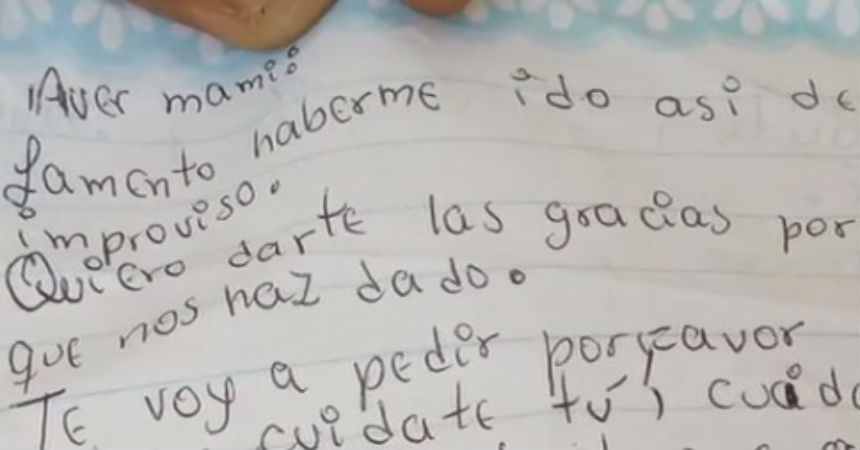 Aver mami:
Lamento haberme ido asi de
improviso.
Quiero darte las gracias por
que nos haz dado.
Te voy a pedir porfavor
cuidate tú,